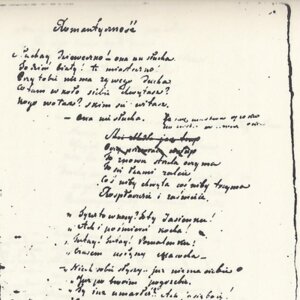 Romantyczność
Słuchaj Dzieweczko! ona nie słucha
To dzień biały! to miasteczko!
Przy tobie nie ma żywego ducha
Co tam w koło siebie chwytasz?
Kogo wołasz? z kim się witasz.
— Ona nie słucha.
To znowu strzela oczyma
To się łzami zaleje
Coś niby chwyta coś niby trzyma
Rozpłacze się i zaśmieje.
Tyżeś to w nocy? to ty Jasieńku!
Ach! i po śmierci kocha!
Tutaj! tutaj! pomaleńku!
Czasem usłyszy macocha
Niech sobie słyszy już nie ma ciebie
Już po twoim pogrzebie
Ty już umarłeś? Ach! ja się boję!